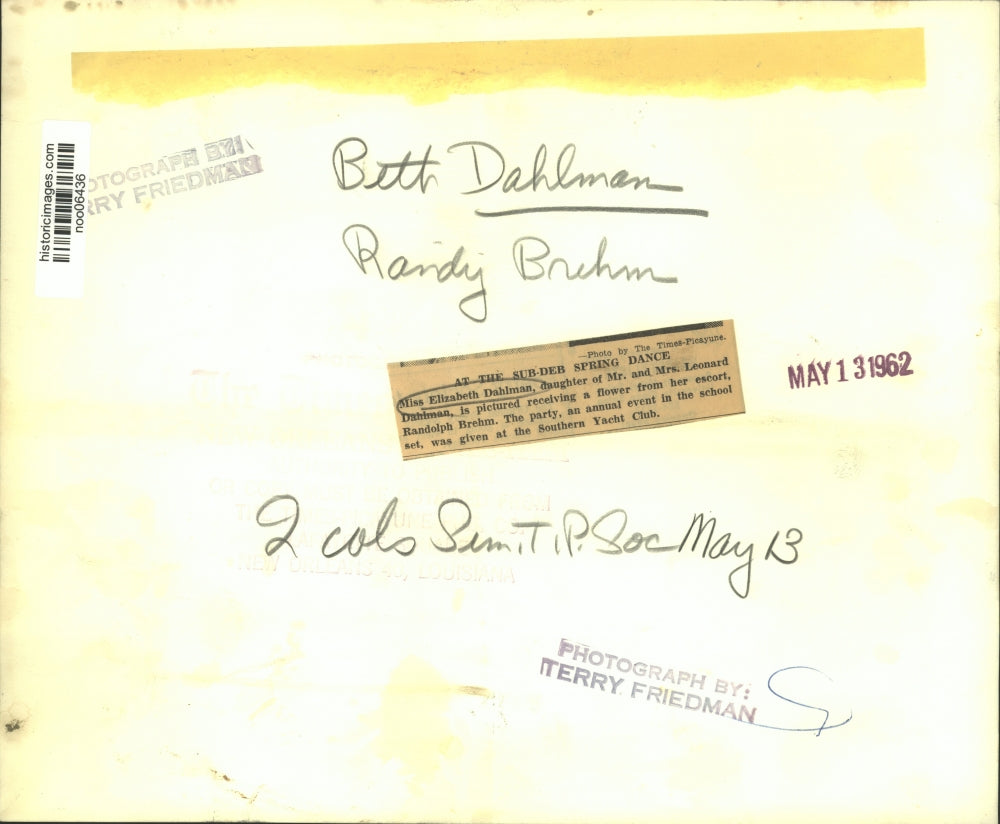 historicimages.com
noo06436
OTOGRAPH BY:
RRY FRIEDMAN
Beth Dahlman
Randy Brehm
—Photo by The Times-Picayune.
AT THE SUB-DEB SPRING DANCE
Miss Elizabeth Dahlman, daughter of Mr. and Mrs. Leonard
Dahlman, is pictured receiving a flower from her escort,
Randolph Brehm. The party, an annual event in the school
set, was given at the Southern Yacht Club.
MAY 13 1962
2 cols Sun. T.P. Soc May 13
NEW ORLEANS 40, LOUISIANA
PHOTOGRAPH BY:
TERRY FRIEDMAN